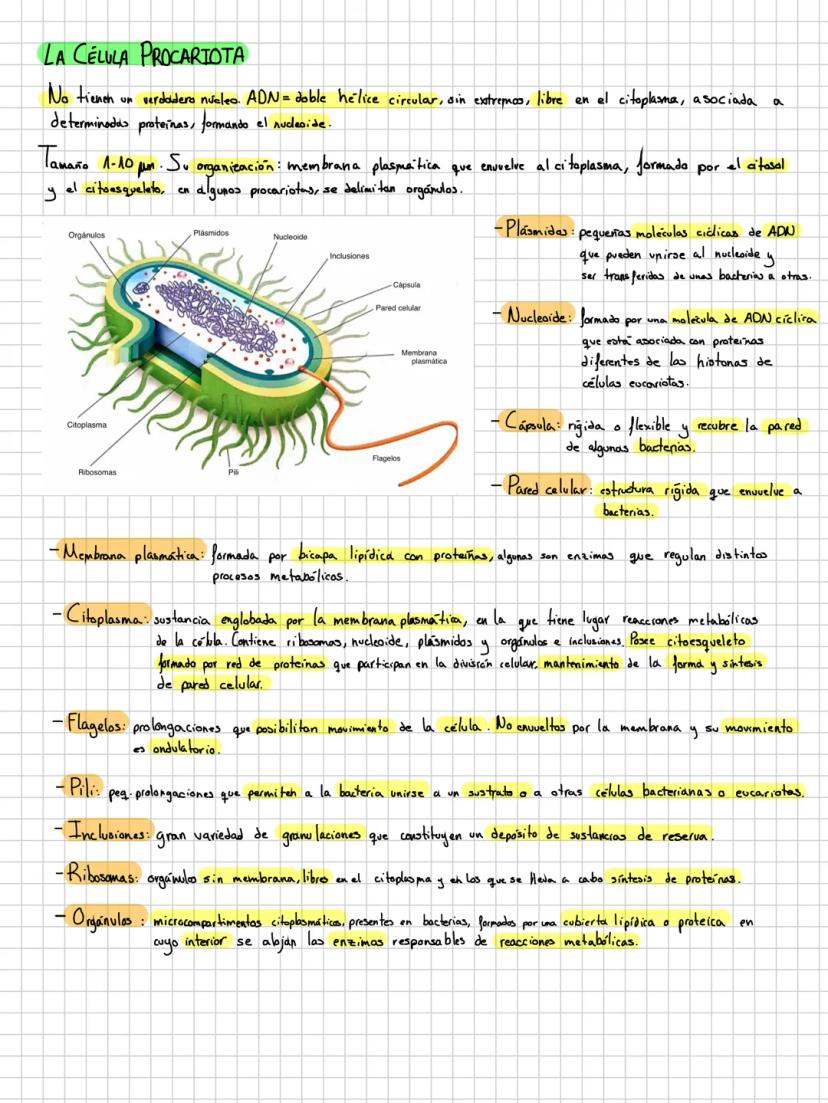 LA CÉLULA PROCARIOTA
No tienen un verdadero núcleo. ADN = doble hélice circular, sin extremos, libre en el citoplasma, asociada a
determinadas proteínas, formando el nucleoide.
Tamaño 1-10 µm. Su organización: membrana plasmática que envuelve al citoplasma, formado por el citosol
y el citoesqueleto, en algunos procariotas, se delimitan orgánulos.
Orgánulos
Plásmidos
Nucleoide
Inclusiones
Cápsula
Pared celular
Membrana
plasmática
Citoplasma
Ribosomas
Pili
Flagelos
- Plásmidos: pequeñas moléculas cíclicas de ADN
que pueden unirse al nucleoide y
ser transferidas de unas bacterias a otras.
- Nucleoide: formado por una molécula de ADN cíclica
que está asociada con proteínas
diferentes de las histonas de
células eucariotas.
- Cápsula: rígida o flexible y recubre la pared
de algunas bacterias.
- Pared celular: estructura rígida que envuelve a
bacterias.
- Membrana plasmática: formada por bicapa lipídica con proteínas, algunas son enzimas que regulan distintos
procesos metabólicos.
- Citoplasma: sustancia englobada por la membrana plasmática, en la que tiene lugar reacciones metabólicas
de la célula. Contiene ribosomas, nucleoide, plásmidos y orgánulos e inclusiones. Posee citoesqueleto
formado por red de proteínas que participan en la división celular, mantenimiento de la forma y síntesis
de pared celular.
- Flagelos: prolongaciones que posibilitan movimiento de la célula. No envueltos por la membrana y su movimiento
es ondulatorio.
- Pili: peq. prolongaciones que permiten a la bacteria unirse a un sustrato o a otras células bacterianas o eucariotas.
- Inclusiones: gran variedad de granulaciones que constituyen un depósito de sustancias de reserva.
- Ribosomas: orgánulos sin membrana, libres en el citoplasma y en los que se lleva a cabo síntesis de proteínas.
- Orgánulos: microcompartimentos citoplasmáticos, presentes en bacterias, formados por una cubierta lipídica o proteica en
cuyo interior se alojan las enzimas responsables de reacciones metabólicas.